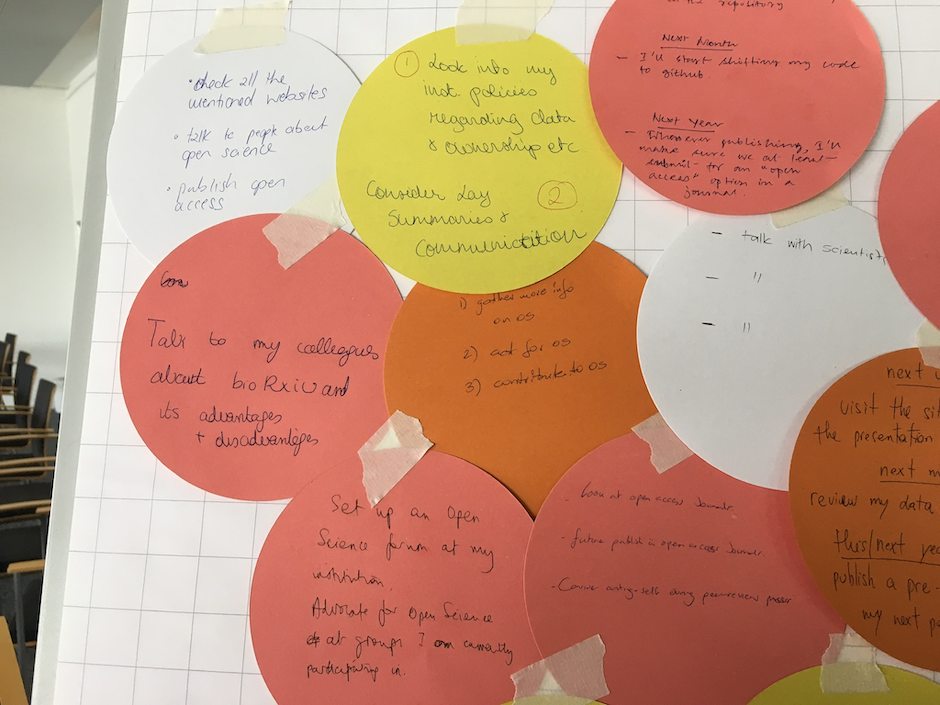 • check all the
mentioned websites
• talk to people about
open science
• publish open
access
① Look into my
inst. policies
regarding data
& ownership etc
Consider Lay ②
Summaries &
Communication
the repository
Next Month
- I'll start shifting my code
to github.
Next Year
- Whenever publishing, I'll
make sure we at least
submit for an "open
access" option in a
journal.
Talk to my colleagues
about bioRxiv and
its advantages
+ disadvantages
1) gather more info
on OS
2) act for OS
3) contribute to OS
- talk with scientist
- "
- "
next
visit the si
the presentation
next m
review my data
this/next yea
publish a pre-
my next p
Set up an Open
Science forum at my
institution.
Advocate for Open Science
at groups I am currently
participating in.
- Look at open access Journals
- future publish in open access Journals
- during peer review process